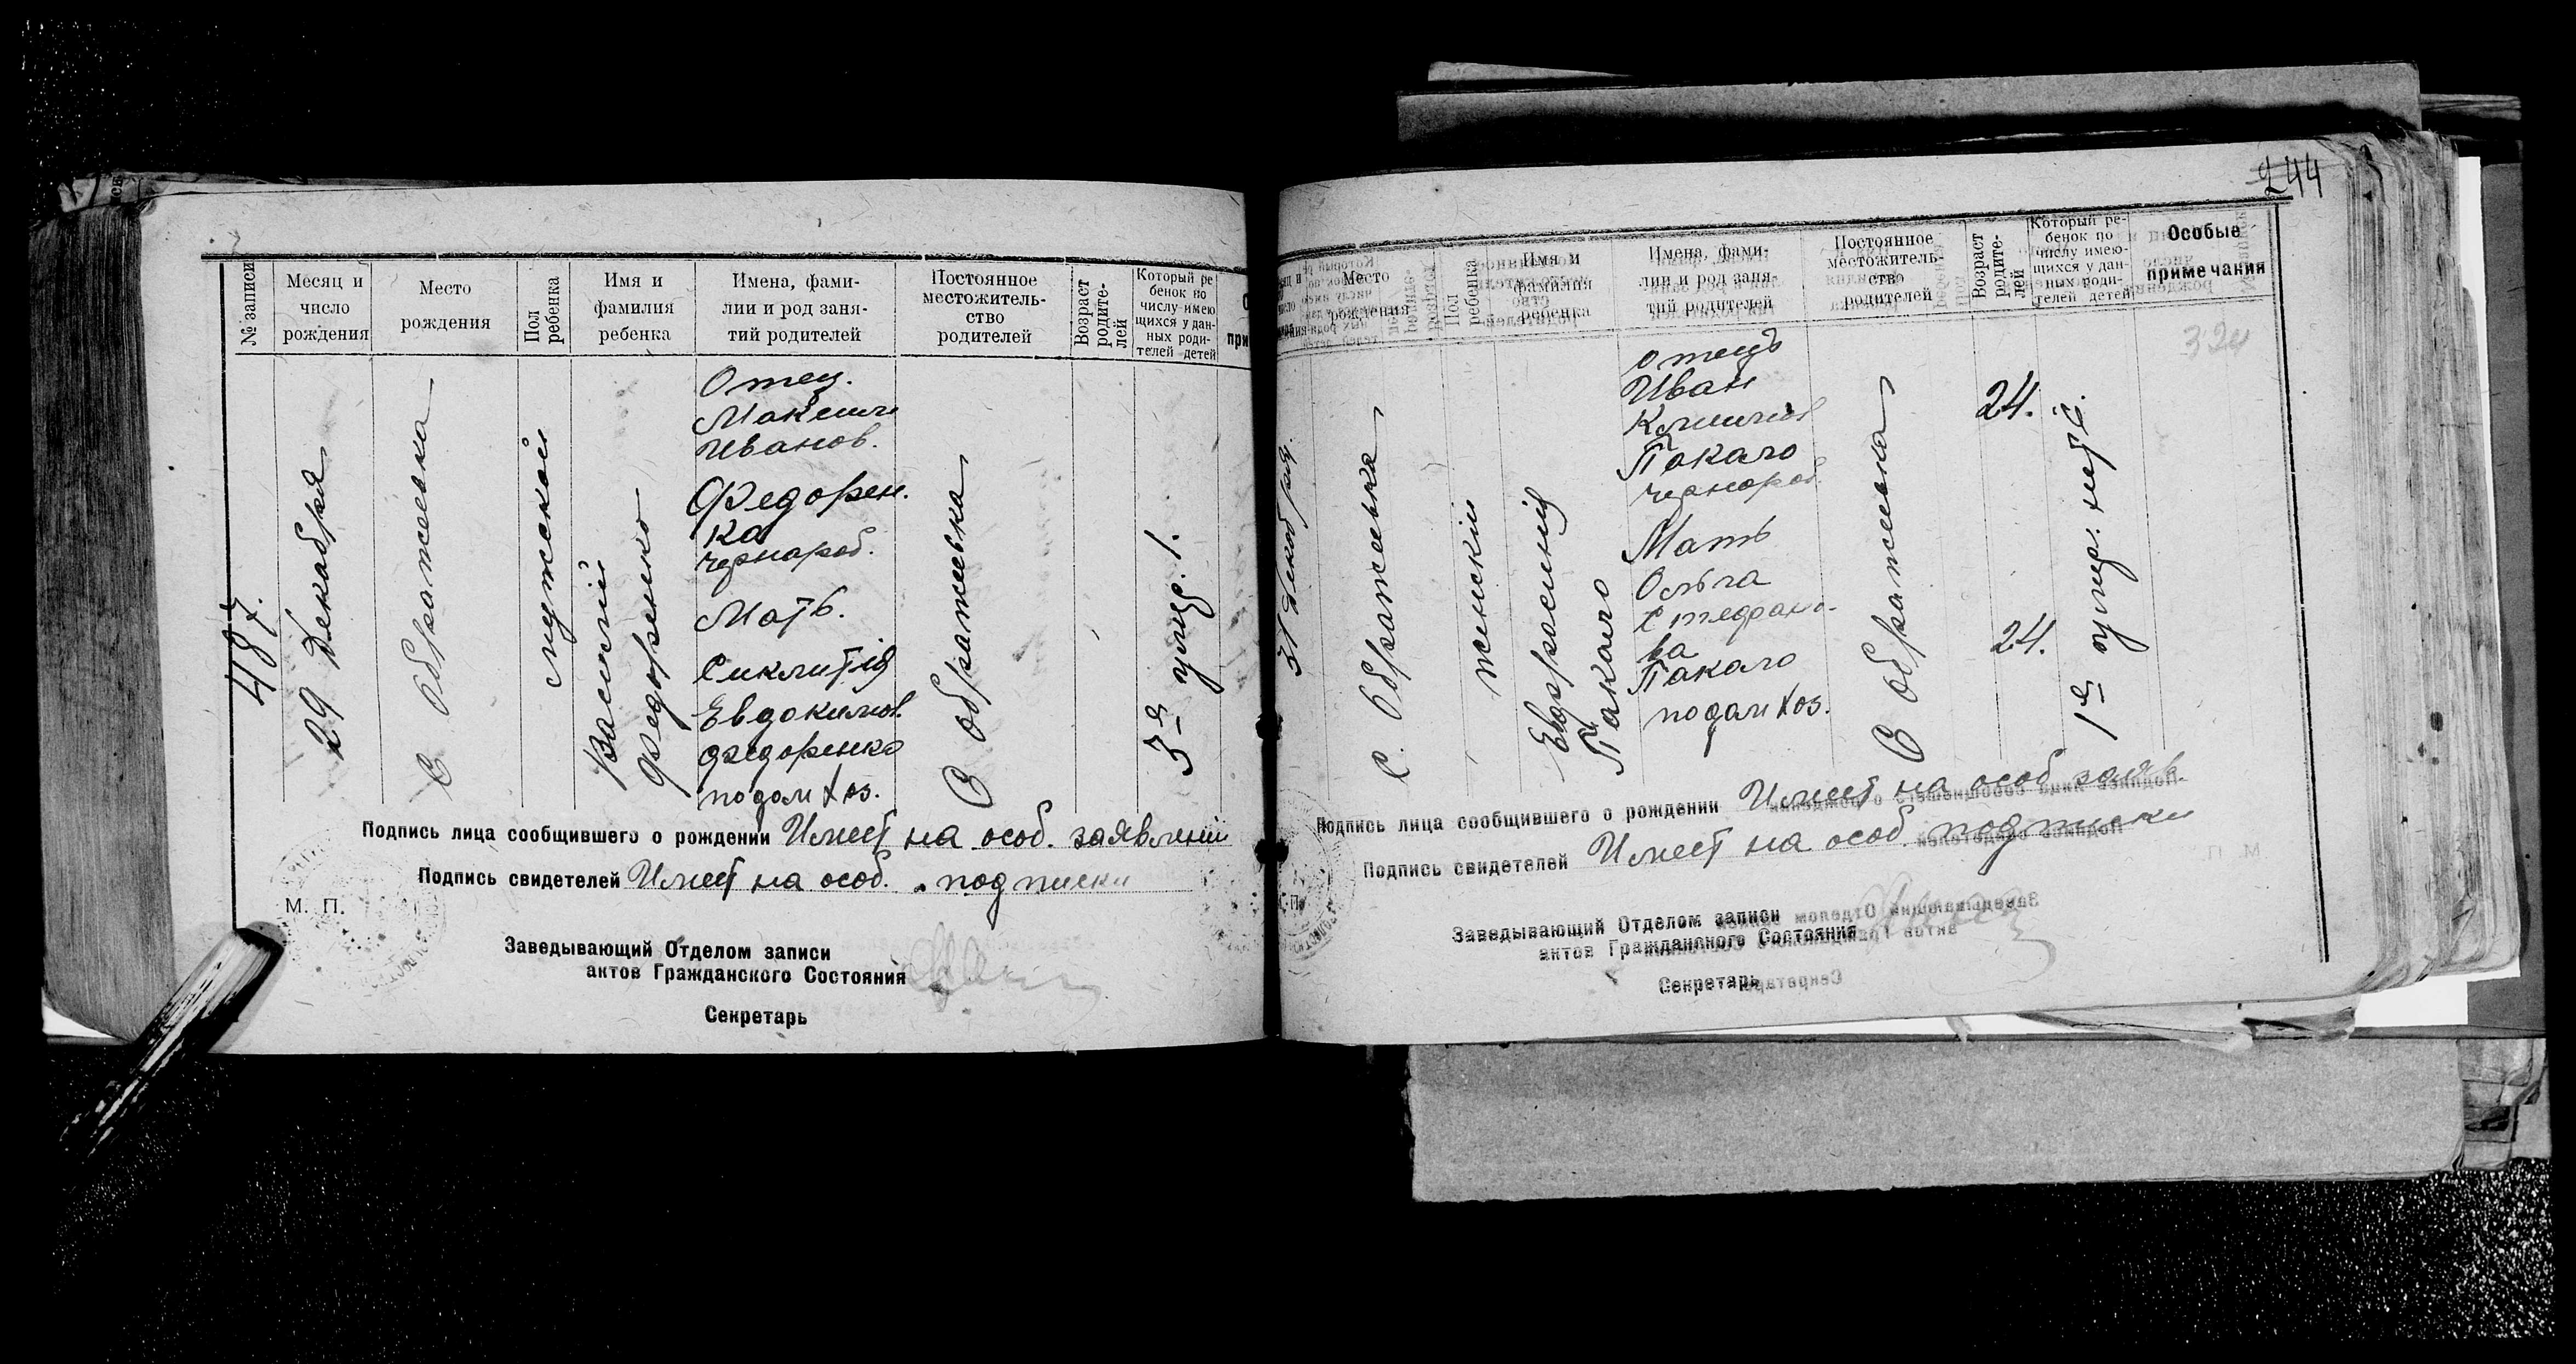 № записи
Месяц и число рождения
Место рождения
Пол ребенка
Имя и фамилия ребенка
Имена, фами-
лии и род заня-
тий родителей
Постоянное
местожитель-
ство
родителей
Возраст родите-
лей
Который ре
бенок по
числу имею
щихся у дан-
ных роди-
телей детей
487.
29 Декабря
С Ображеевка
мужской
Василий
Федоренко
Отец.
Максим
Иванов.
Федорен.
ка
чернораб.
Мать.
Сиклитія
Евдокимов.
Федоренко
подом хоз.
С Ображеевка
3-й умер. 1.
Подпись лица сообщившего о рождении Имеет на особ. заявлении
Подпись свидетелей Имеет на особ. подписки
М. П.
Заведывающий Отделом записи
актов Гражданского Состояния
Секретарь
244
Место
рождения
Пол
ребенка
Имя и
фамилия
ребенка
Имена, фами-
лии и род заня-
тий родителей
Постоянное
местожитель-
ство
родителей
Возраст
родите-
лей
Который ре-
бенок по
числу имею-
щихся у дан-
ных роди-
телей детей
Особые
примечания
31
С. Ображеевка
женскій
Евфросинія
Пакало
отець
Иван
Пакало
чернораб.
Мать
Ольга
Стефано-
ва
Пакало
подом хоз.
С Ображеевка
24.
24.
1й умер:
Подпись лица сообщившего о рождении Имеет на особ заяв
Подпись свидетелей Имеет на особ. подписки
Заведывающий Отделом записи
актов Гражданского Состояния
Секретарь